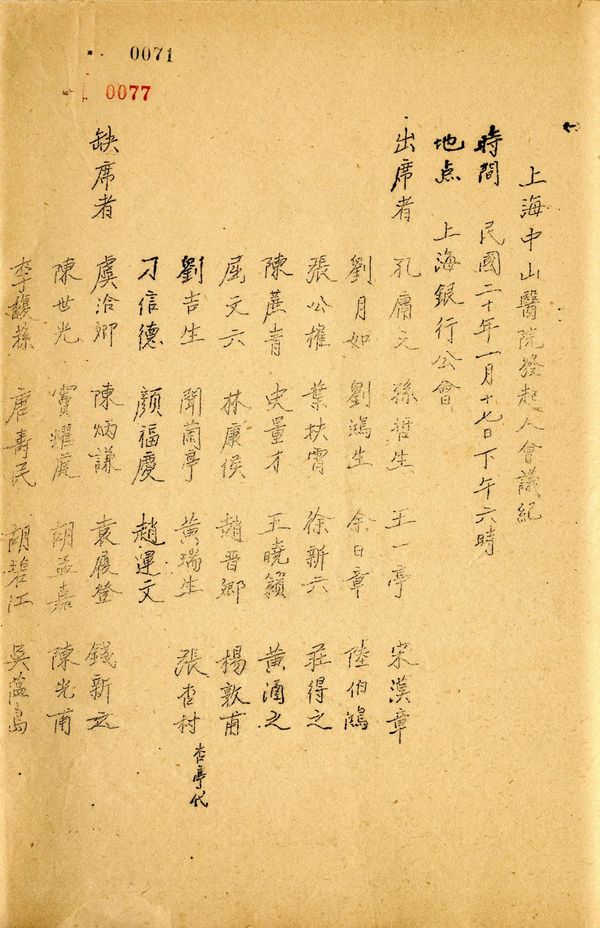 0071
0077
上海中山醫院發起人會議紀
時間　民國二十年一月十七日下午六時
地点　上海銀行公會
出席者　孔庸之　孫哲生　王一亭　宋漢章
劉月如　劉鴻生　余日章　陸伯鴻
張公權　葉扶霄　徐新六　莊得之
陳蔗青　史量才　王曉籟　黃涵之
屈文六　林康侯　趙晋卿　楊敦甫
劉吉生　聞蘭亭　黃瑞生　張杏村　杏亭代
刁信德　顏福慶　趙運文
缺席者　虞洽卿　陳炳謙　袁履登　錢新之
陳世光　竇耀庭　胡孟嘉　陳光甫
李馥蓀　唐壽民　胡碧江　吳蘊斋